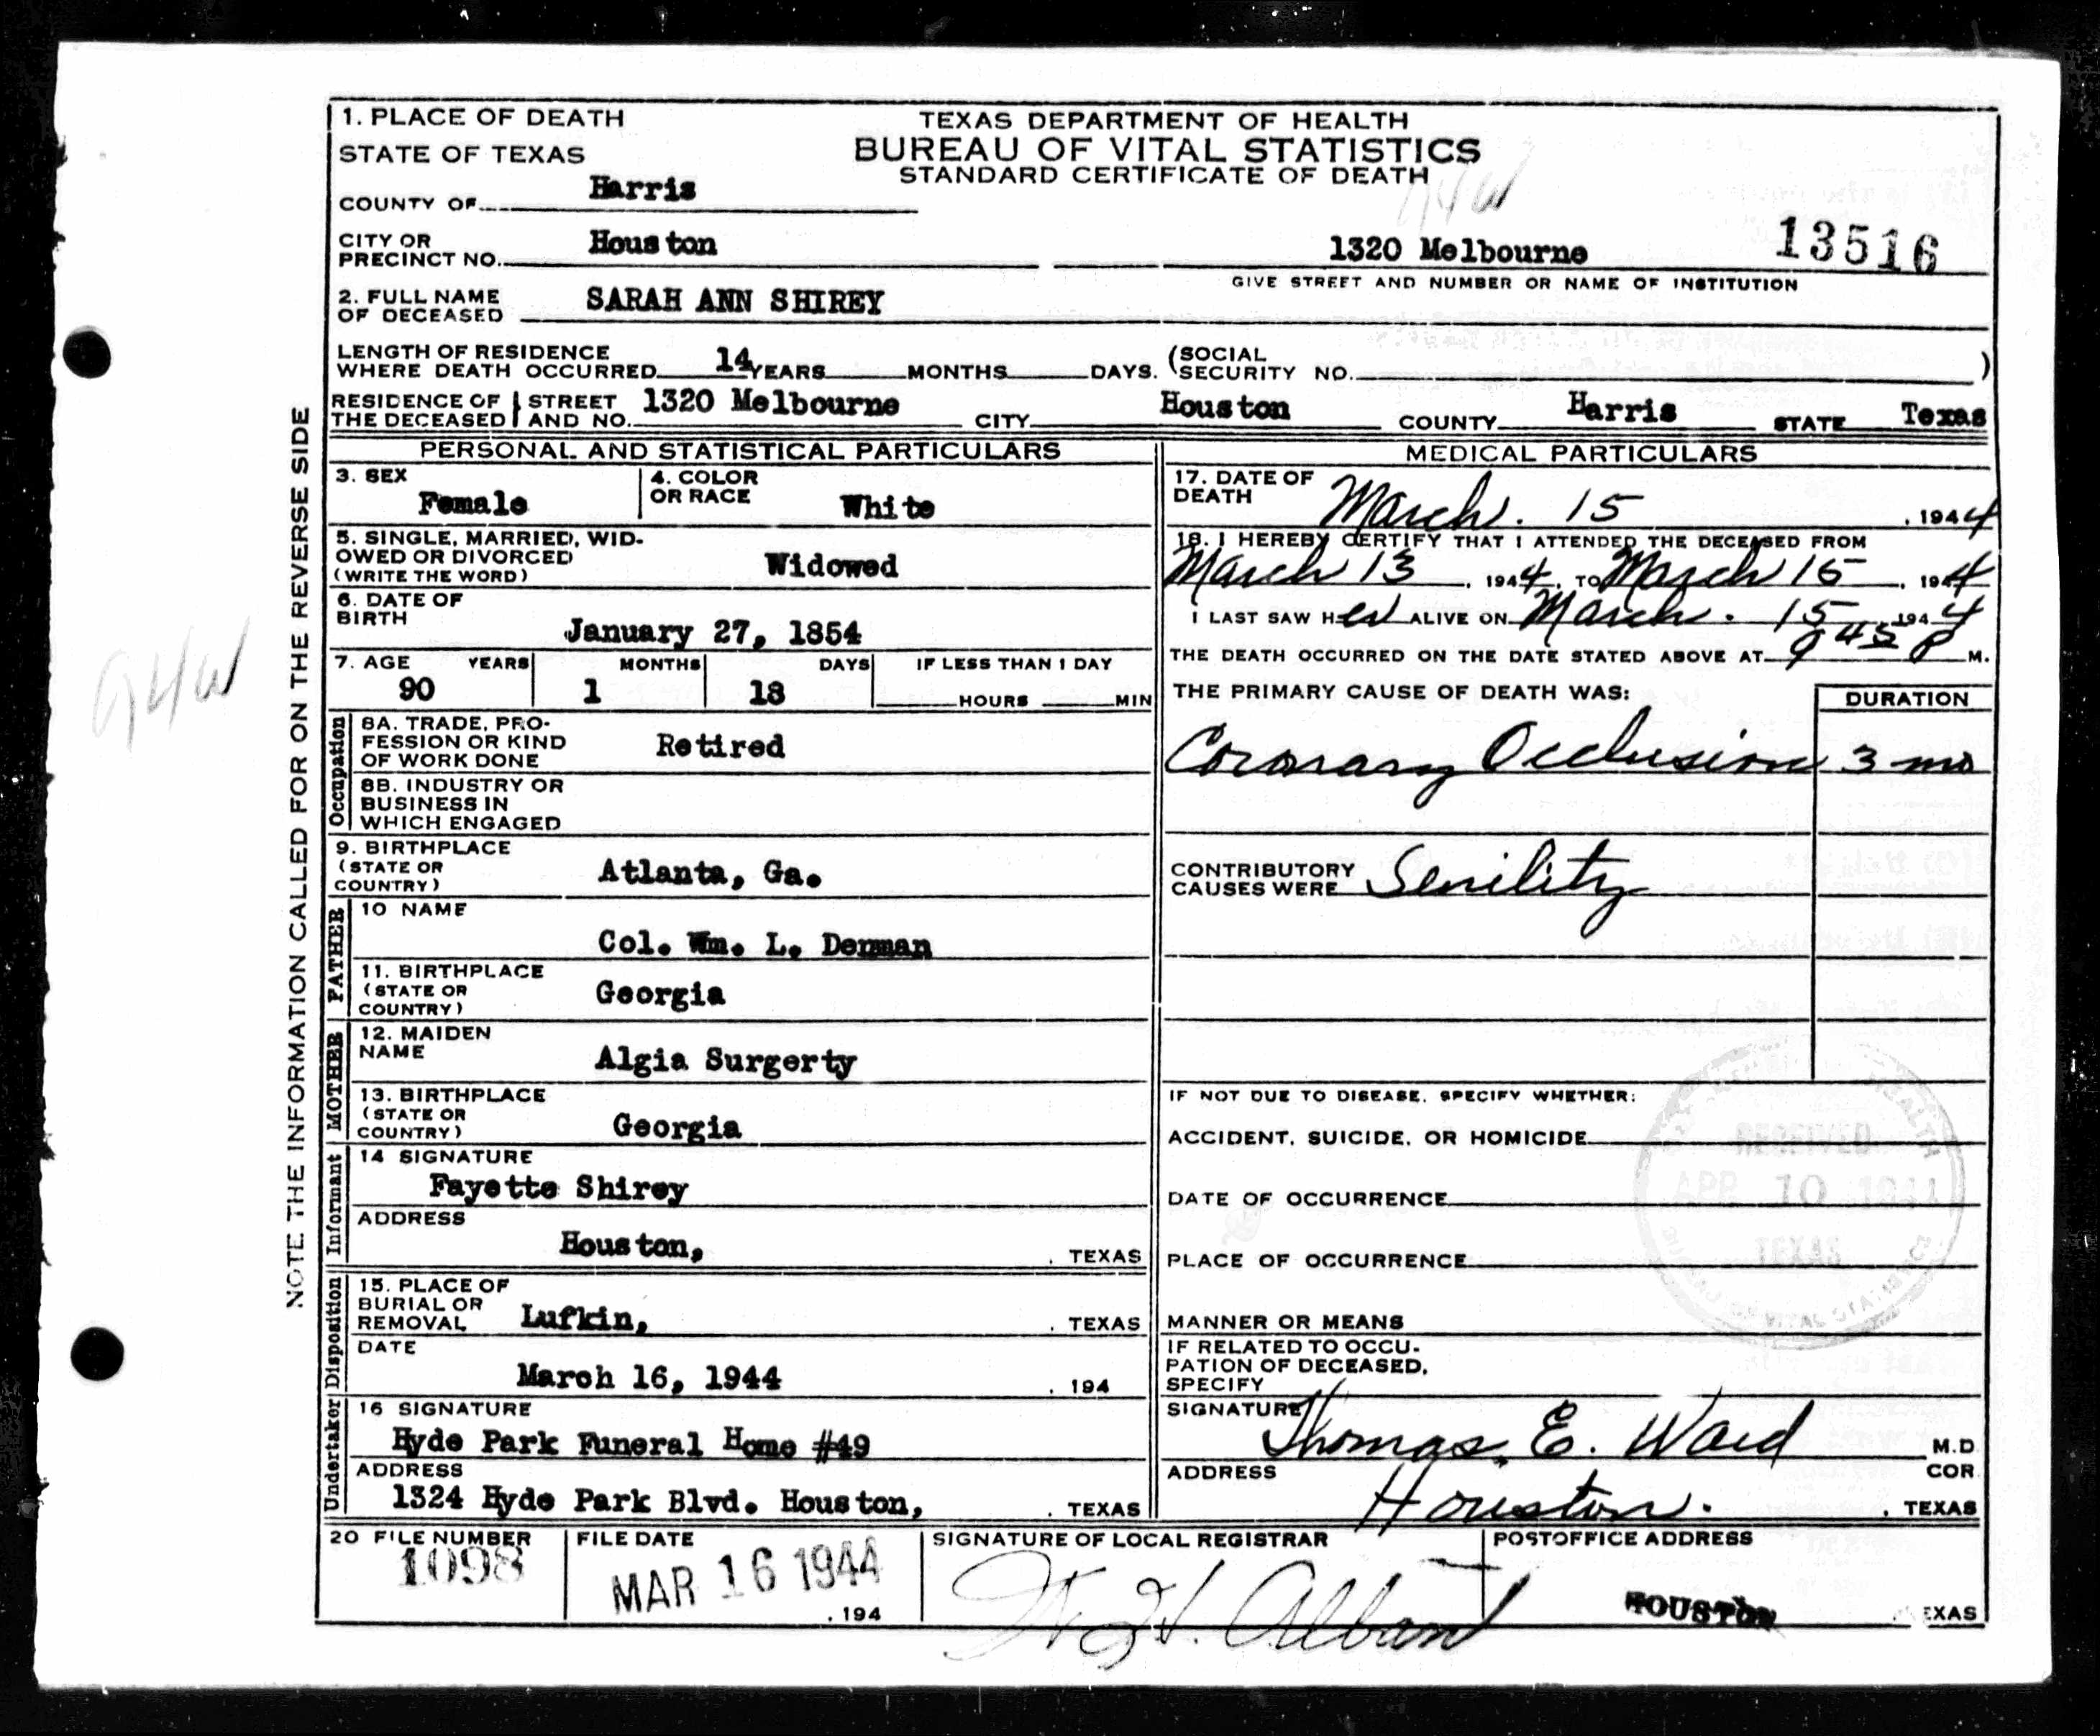 1. PLACE OF DEATH
STATE OF TEXAS
COUNTY OF Harris
TEXAS DEPARTMENT OF HEALTH
BUREAU OF VITAL STATISTICS
STANDARD CERTIFICATE OF DEATH
94W
CITY OR
PRECINCT NO. Houston
1320 Melbourne
13516
GIVE STREET AND NUMBER OR NAME OF INSTITUTION
2. FULL NAME
OF DECEASED SARAH ANN SHIREY
LENGTH OF RESIDENCE
WHERE DEATH OCCURRED 14 YEARS MONTHS DAYS. (SOCIAL
SECURITY NO. )
RESIDENCE OF THE DECEASED STREET AND NO. 1320 Melbourne CITY Houston COUNTY Harris STATE Texas
NOTE THE INFORMATION CALLED FOR ON THE REVERSE SIDE
94W
PERSONAL AND STATISTICAL PARTICULARS
3. SEX
Female
4. COLOR
OR RACE White
5. SINGLE, MARRIED, WID-
OWED OR DIVORCED
(WRITE THE WORD) Widowed
6. DATE OF
BIRTH
January 27, 1854
7. AGE YEARS MONTHS DAYS IF LESS THAN 1 DAY
90 1 18 HOURS MIN
Occupation
8A. TRADE, PRO-
FESSION OR KIND
OF WORK DONE Retired
8B. INDUSTRY OR
BUSINESS IN
WHICH ENGAGED
9. BIRTHPLACE
(STATE OR
COUNTRY) Atlanta, Ga.
FATHER
10 NAME
Col. Wm. L. Denman
11. BIRTHPLACE
(STATE OR
COUNTRY) Georgia
MOTHER
12. MAIDEN
NAME Algia Surgerty
13. BIRTHPLACE
(STATE OR
COUNTRY) Georgia
Informant
14 SIGNATURE
Fayette Shirey
ADDRESS
Houston, . TEXAS
Disposition
15. PLACE OF
BURIAL OR
REMOVAL Lufkin, . TEXAS
DATE
March 16, 1944 . 194
Undertaker
16 SIGNATURE
Hyde Park Funeral Home #49
ADDRESS
1324 Hyde Park Blvd. Houston, . TEXAS
MEDICAL PARTICULARS
17. DATE OF
DEATH March. 15 , 1944
18. I HEREBY CERTIFY THAT I ATTENDED THE DECEASED FROM
March 13 , 1944, TO March 15 , 1944
I LAST SAW HER ALIVE ON March. 15 1944
THE DEATH OCCURRED ON THE DATE STATED ABOVE AT 9 45 P M.
THE PRIMARY CAUSE OF DEATH WAS: DURATION
Coronary Occlusion 3 mo
CONTRIBUTORY
CAUSES WERE Senility
IF NOT DUE TO DISEASE, SPECIFY WHETHER:
ACCIDENT, SUICIDE, OR HOMICIDE
DATE OF OCCURRENCE
PLACE OF OCCURRENCE
RECEIVED
APR 10 1944
TEXAS
MANNER OR MEANS
IF RELATED TO OCCU-
PATION OF DECEASED,
SPECIFY
SIGNATURE Thomas E. Ward M.D
ADDRESS COR.
Houston. , TEXAS
20 FILE NUMBER
1098
FILE DATE
MAR 16 1944
, 194
SIGNATURE OF LOCAL REGISTRAR
POSTOFFICE ADDRESS
HOUSTON EXAS